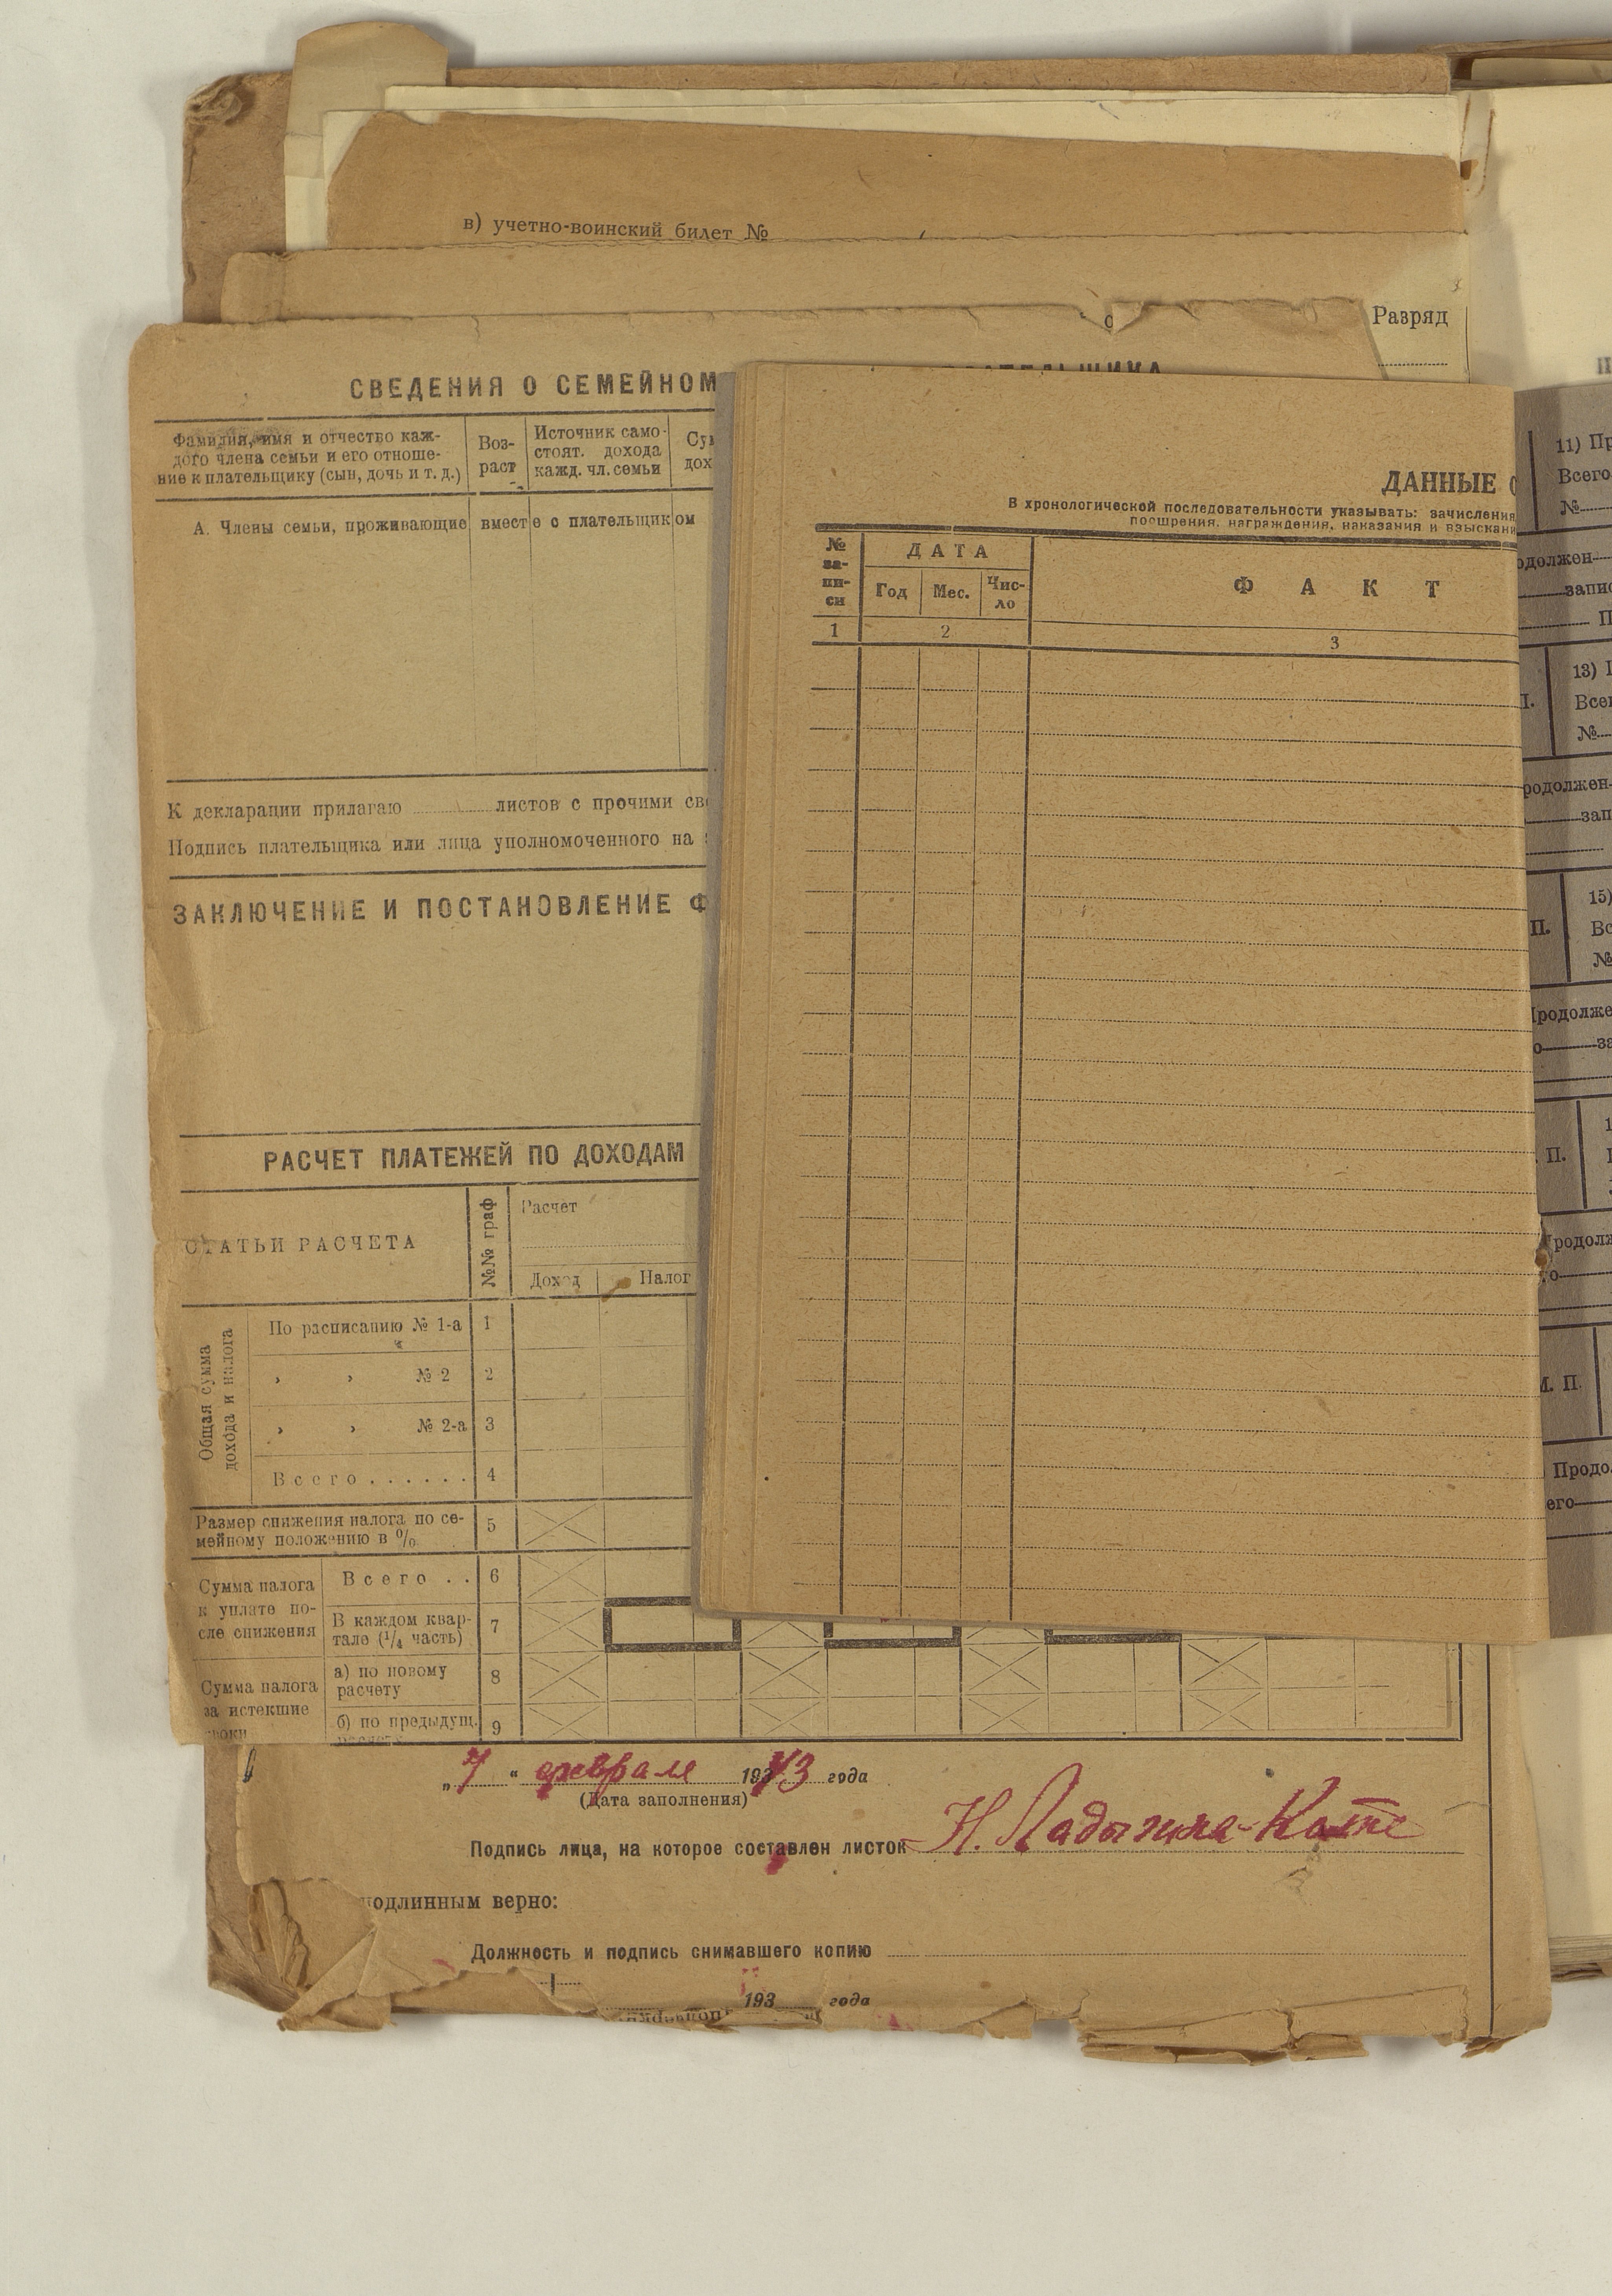 в) учетно-воинский билет №
Разряд
СВЕДЕНИЯ О СЕМЕЙНОМ
Фамилия, имя и отчество каж-
дого члена семьи и его отноше-
ние к плательщику (сын, дочь и т. д.)
Воз-
раст
Источник само-
стоят. дохода
кажд. чл. семьи
А. Члены семьи, проживающие вместе с плательщиком
К декларации прилагаю листов с прочими
Подпись плательщика или лица уполномоченного на
ЗАКЛЮЧЕНИЕ И ПОСТАНОВЛЕНИЕ Ф
РАСЧЕТ ПЛАТЕЖЕЙ ПО ДОХОДАМ
СТАТЬИ РАСЧЕТА
№№ граф
Расчет
Доход Налог
Общая сумма
дохода и налога
По расписанию № 1-а 1
› › № 2 2
› › № 2-а 3
Всего . . . . . . 4
Размер снижения налога по се-
мейному положению в % 5
Сумма налога
к уплате по-
сле снижения
Всего . . 6
В каждом квар-
тале (1/4 часть) 7
Сумма налога
за истекшие
сроки
а) по новому
расчету 8
б) по предыдущ. 9
ДАННЫЕ О
В хронологической последовательности указывать: зачисления
поощрения, награждения, наказания и взыскани
№
за-
пи-
си
ДАТА
Год Мес. Чис-
ло
ФАКТ
1 2 3
11) Пр
Всего
№
одолжен-
запис
П
13) П
Всег
№
родолжен-
зап
15)
П. Вс
№
Продолже
о за
П.
Продолж
го
М. П.
Продо
его
„7“ февраля 1943 года
(Дата заполнения)
Подпись лица, на которое составлен листок Н. Ладыгина-Котс
подлинным верно:
Должность и подпись снимавшего копию
193 года